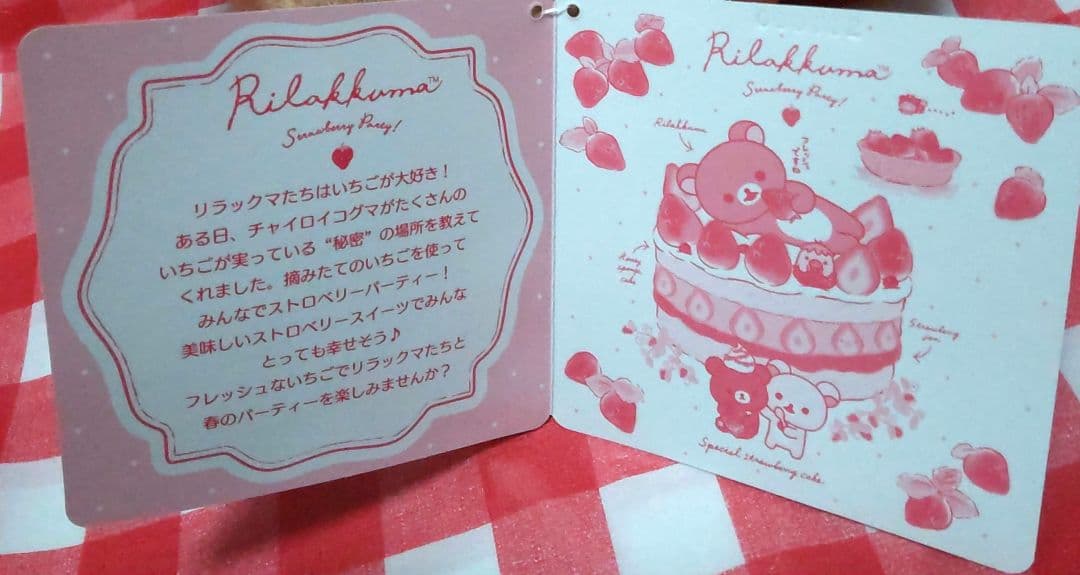 Rilakkuma™
Strawberry Party!
リラックマたちはいちごが大好き！
ある日、チャイロイコグマがたくさんの
いちごが実っている“秘密”の場所を教えて
くれました。摘みたてのいちごを使って
みんなでストロベリーパーティー！
美味しいストロベリースイーツでみんな
とっても幸せそう♪
フレッシュないちごでリラックマたちと
春のパーティーを楽しみませんか？
Rilakkuma™
Strawberry Party!
Rilakkuma
フレッシュ
です
Strawberry
Special strawberry cake